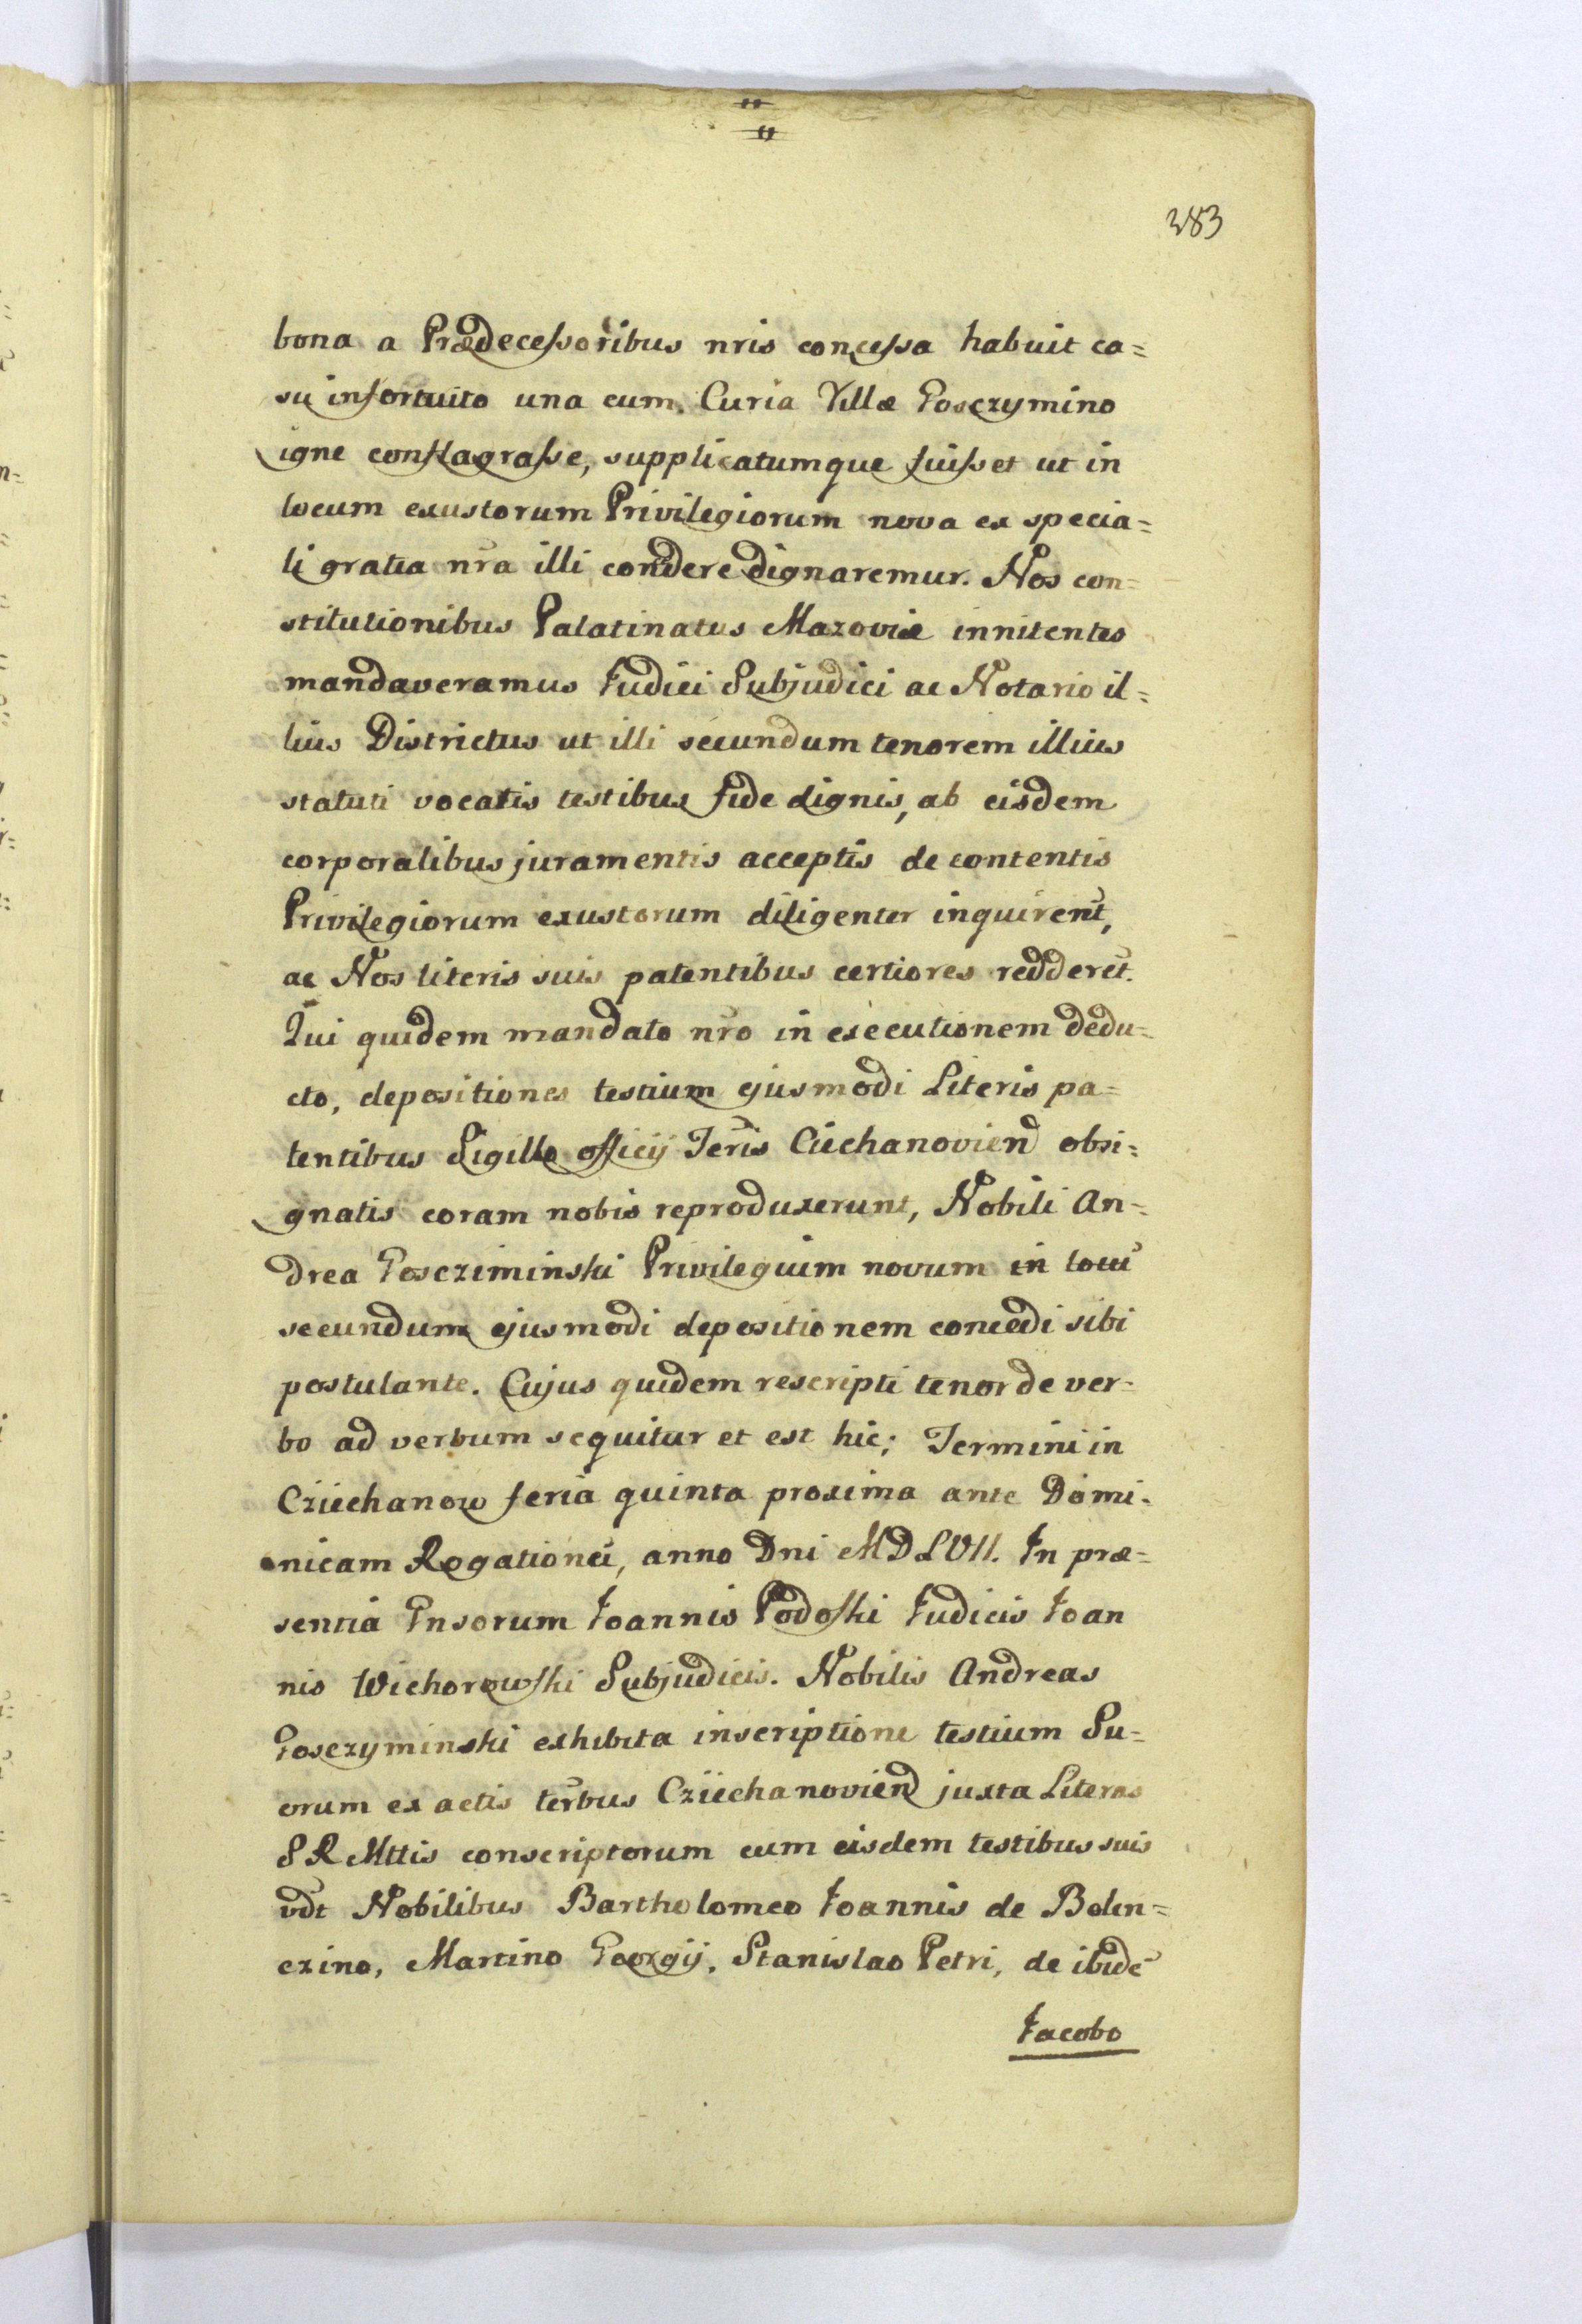 383
bona a Prædecessoribus nris concessa habuit ca=
su infortuito una cum. Curia Villæ Gosczymino
igne conflagrasse, supplicatumque fuisset ut in
locum exustorum Privilegiorum nova ex specia=
li gratia nra illi condere dignaremur. Nos con=
stitutionibus Palatinatus Mazoviæ innitentes
mandaveramus Iudici Subjudici ac Notario il=
lius Districtus ut illi secundum tenorem illius
statuti vocatis testibus fide dignis, ab eisdem
corporalibus juramentis acceptis de contentis
Privilegiorum exustorum diligenter inquirent,
ac Nos literis suis patentibus certiores redderet.
Qui quidem mandato nro in executionem dedu=
cto, depositiones testium ejusmodi Literis pa=
tentibus Sigillo officij Terris Ciechanovien obsi=
gnatis coram nobis reproduxerunt, Nobili An=
drea Gosciminski Privilegium novum in locu
secundum ejusmodi depositionem concedi sibi
postulante. Cujus quidem rescripti tenor de ver=
bo ad verbum sequitur et est hic; Termini in
Cziechanow feria quinta proxima ante Domi=
nicam Rogationu, anno Dni MDLVII. In præ=
sentia Gnsorum Ioannis Podoski Iudicis Ioan
nis Wichorowski Subjudicis. Nobilis Andreas
Gosczyminski exhibita inscriptione testium Su=
orum ex actis terbus Cziechanovien juxta Literas
S R Mttis conscriptorum cum eisdem testibus suis
vdt Nobilibus Bartholomeo Ioannis de Bolen=
czino, Martino Georgij, Stanislao Petri, de ibide
Iacobo